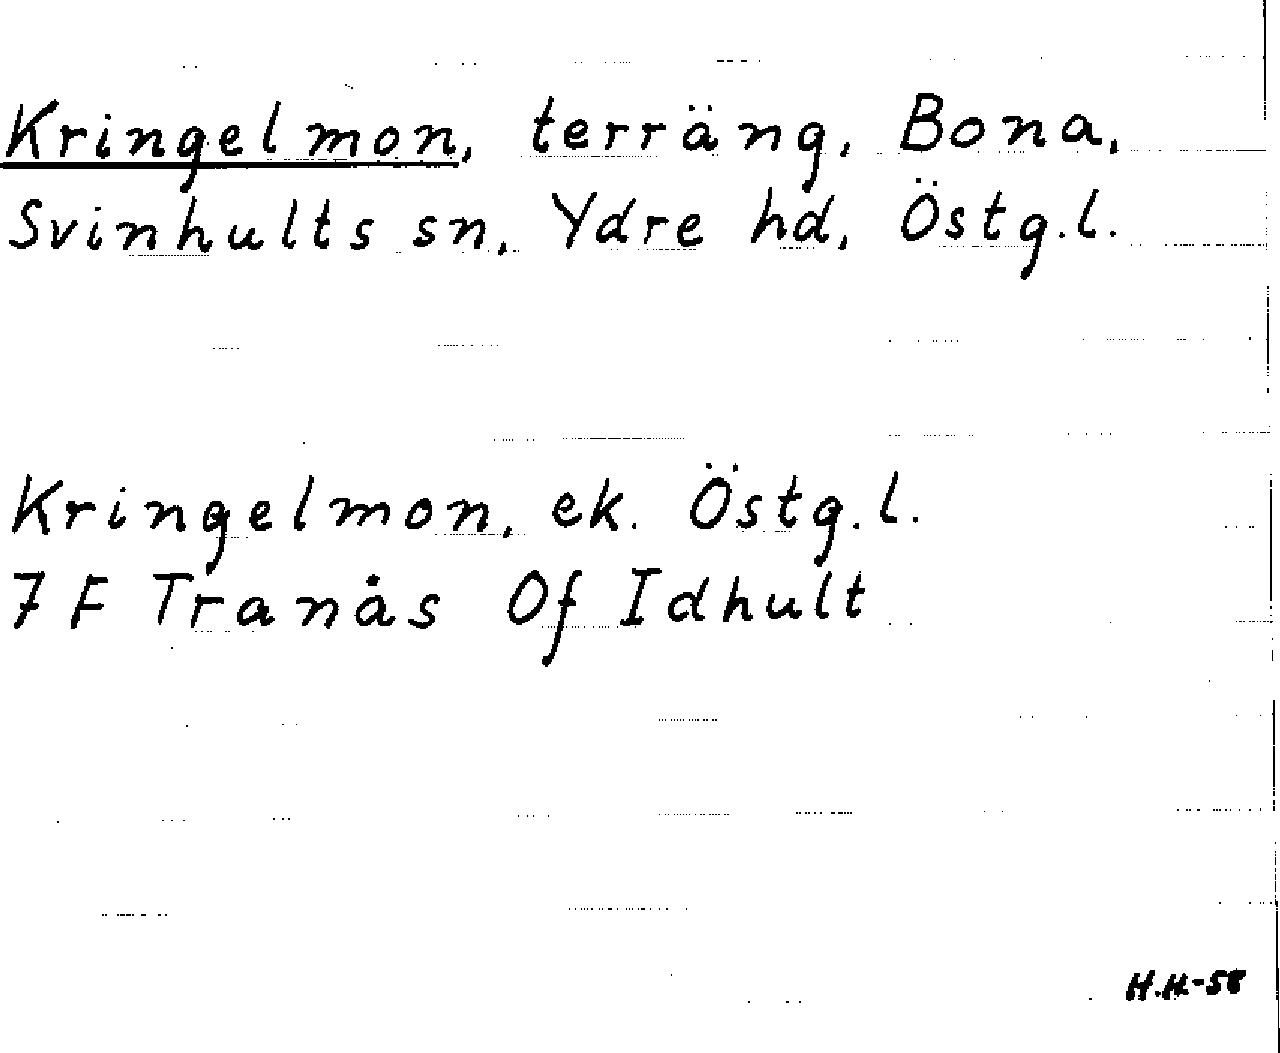 Kringelmon, terräng, Bona,
Svinhults sn, Ydre hd, Östg.l.
Kringelmon, ek. Östg.l.
7 F Tranås Of Idhult
H.H-58